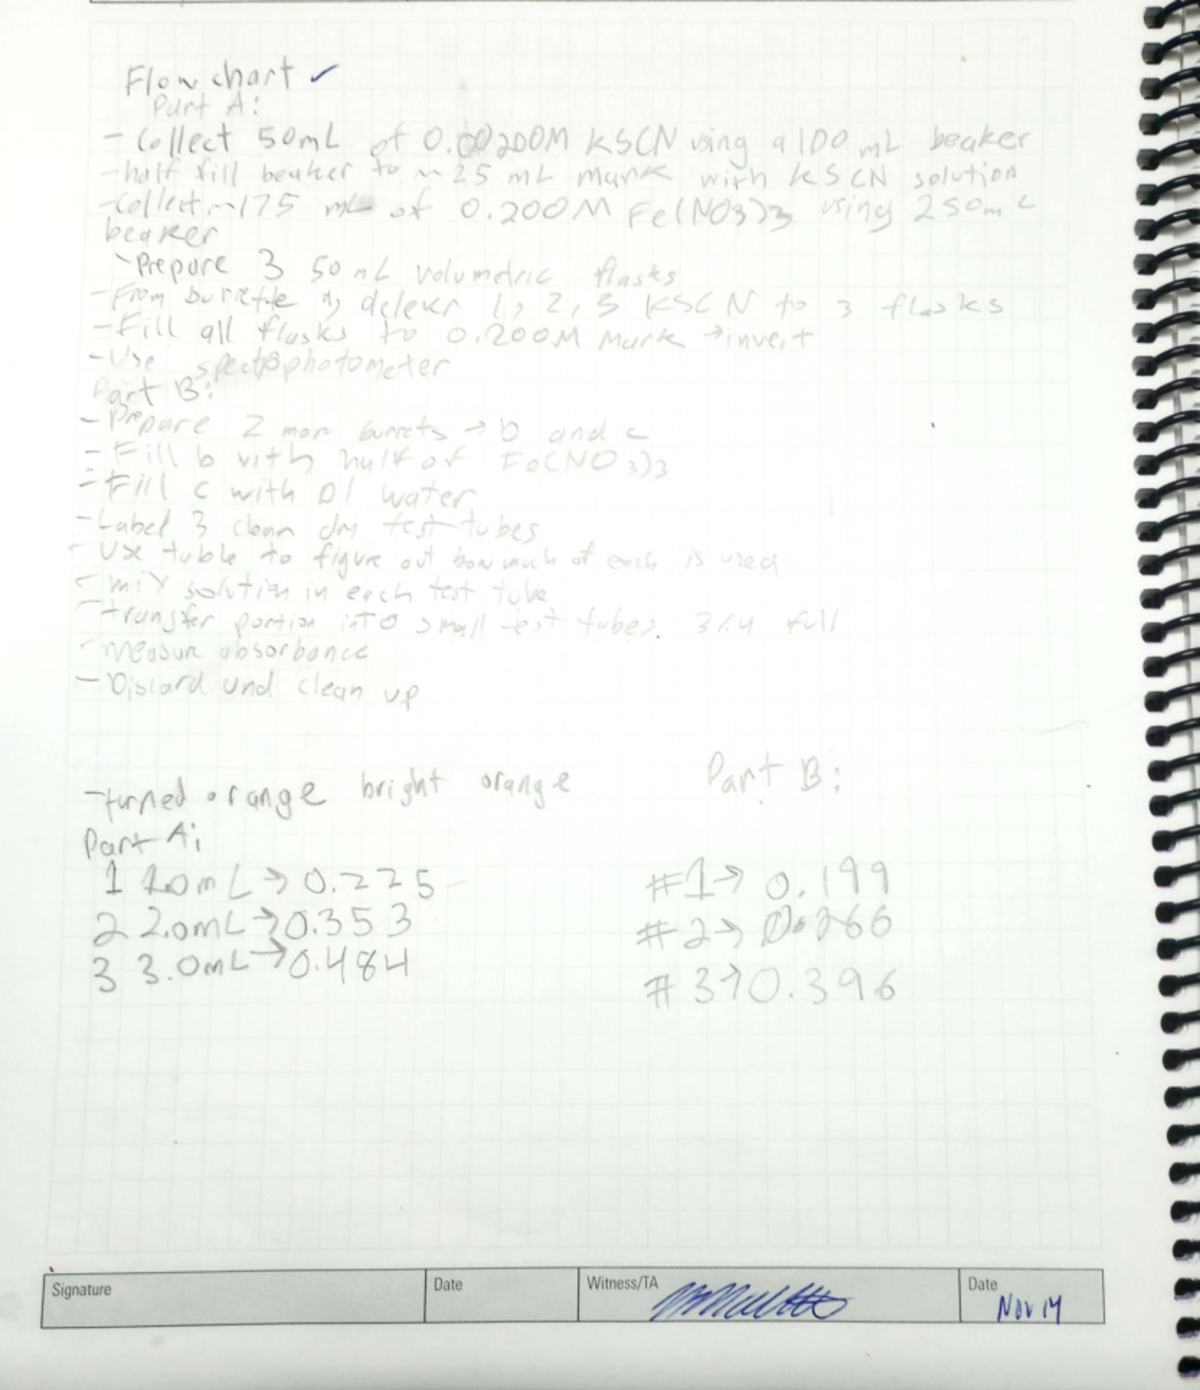 Flow chart ✓
Part A:
- Collect 50mL of 0.00200M KSCN using a 100 mL beaker
- half fill beaker to ~25 mL mark with KSCN solution
- Collect ~175 mL of 0.200M Fe(NO3)3 using 250mL
beaker
- Prepare 3 50 mL volumetric flasks
- From burrette delever 1, 2, 3 KSCN to 3 flasks
- Fill all flasks to 0.200M Mark → invert
- Use spectrophotometer
Part B:
- Prepare 2 more burrets → b and c
- Fill b with half of Fe(NO3)3
- Fill c with DI water
- Label 3 clean dry test tubes
- Use table to figure out how much of each is used
- mix solution in each test tube
- transfer portion into small test tubes. 3/4 full
- measur absorbance
- Discard and clean up
- turned orange bright orange
Part A:
1 1.0mL → 0.225
2 2.0mL → 0.353
3 3.0mL → 0.484
Part B:
#1 → 0.199
#2 → 0.266
#3 → 0.396
Signature
Date
Witness/TA
Date
Nov 14